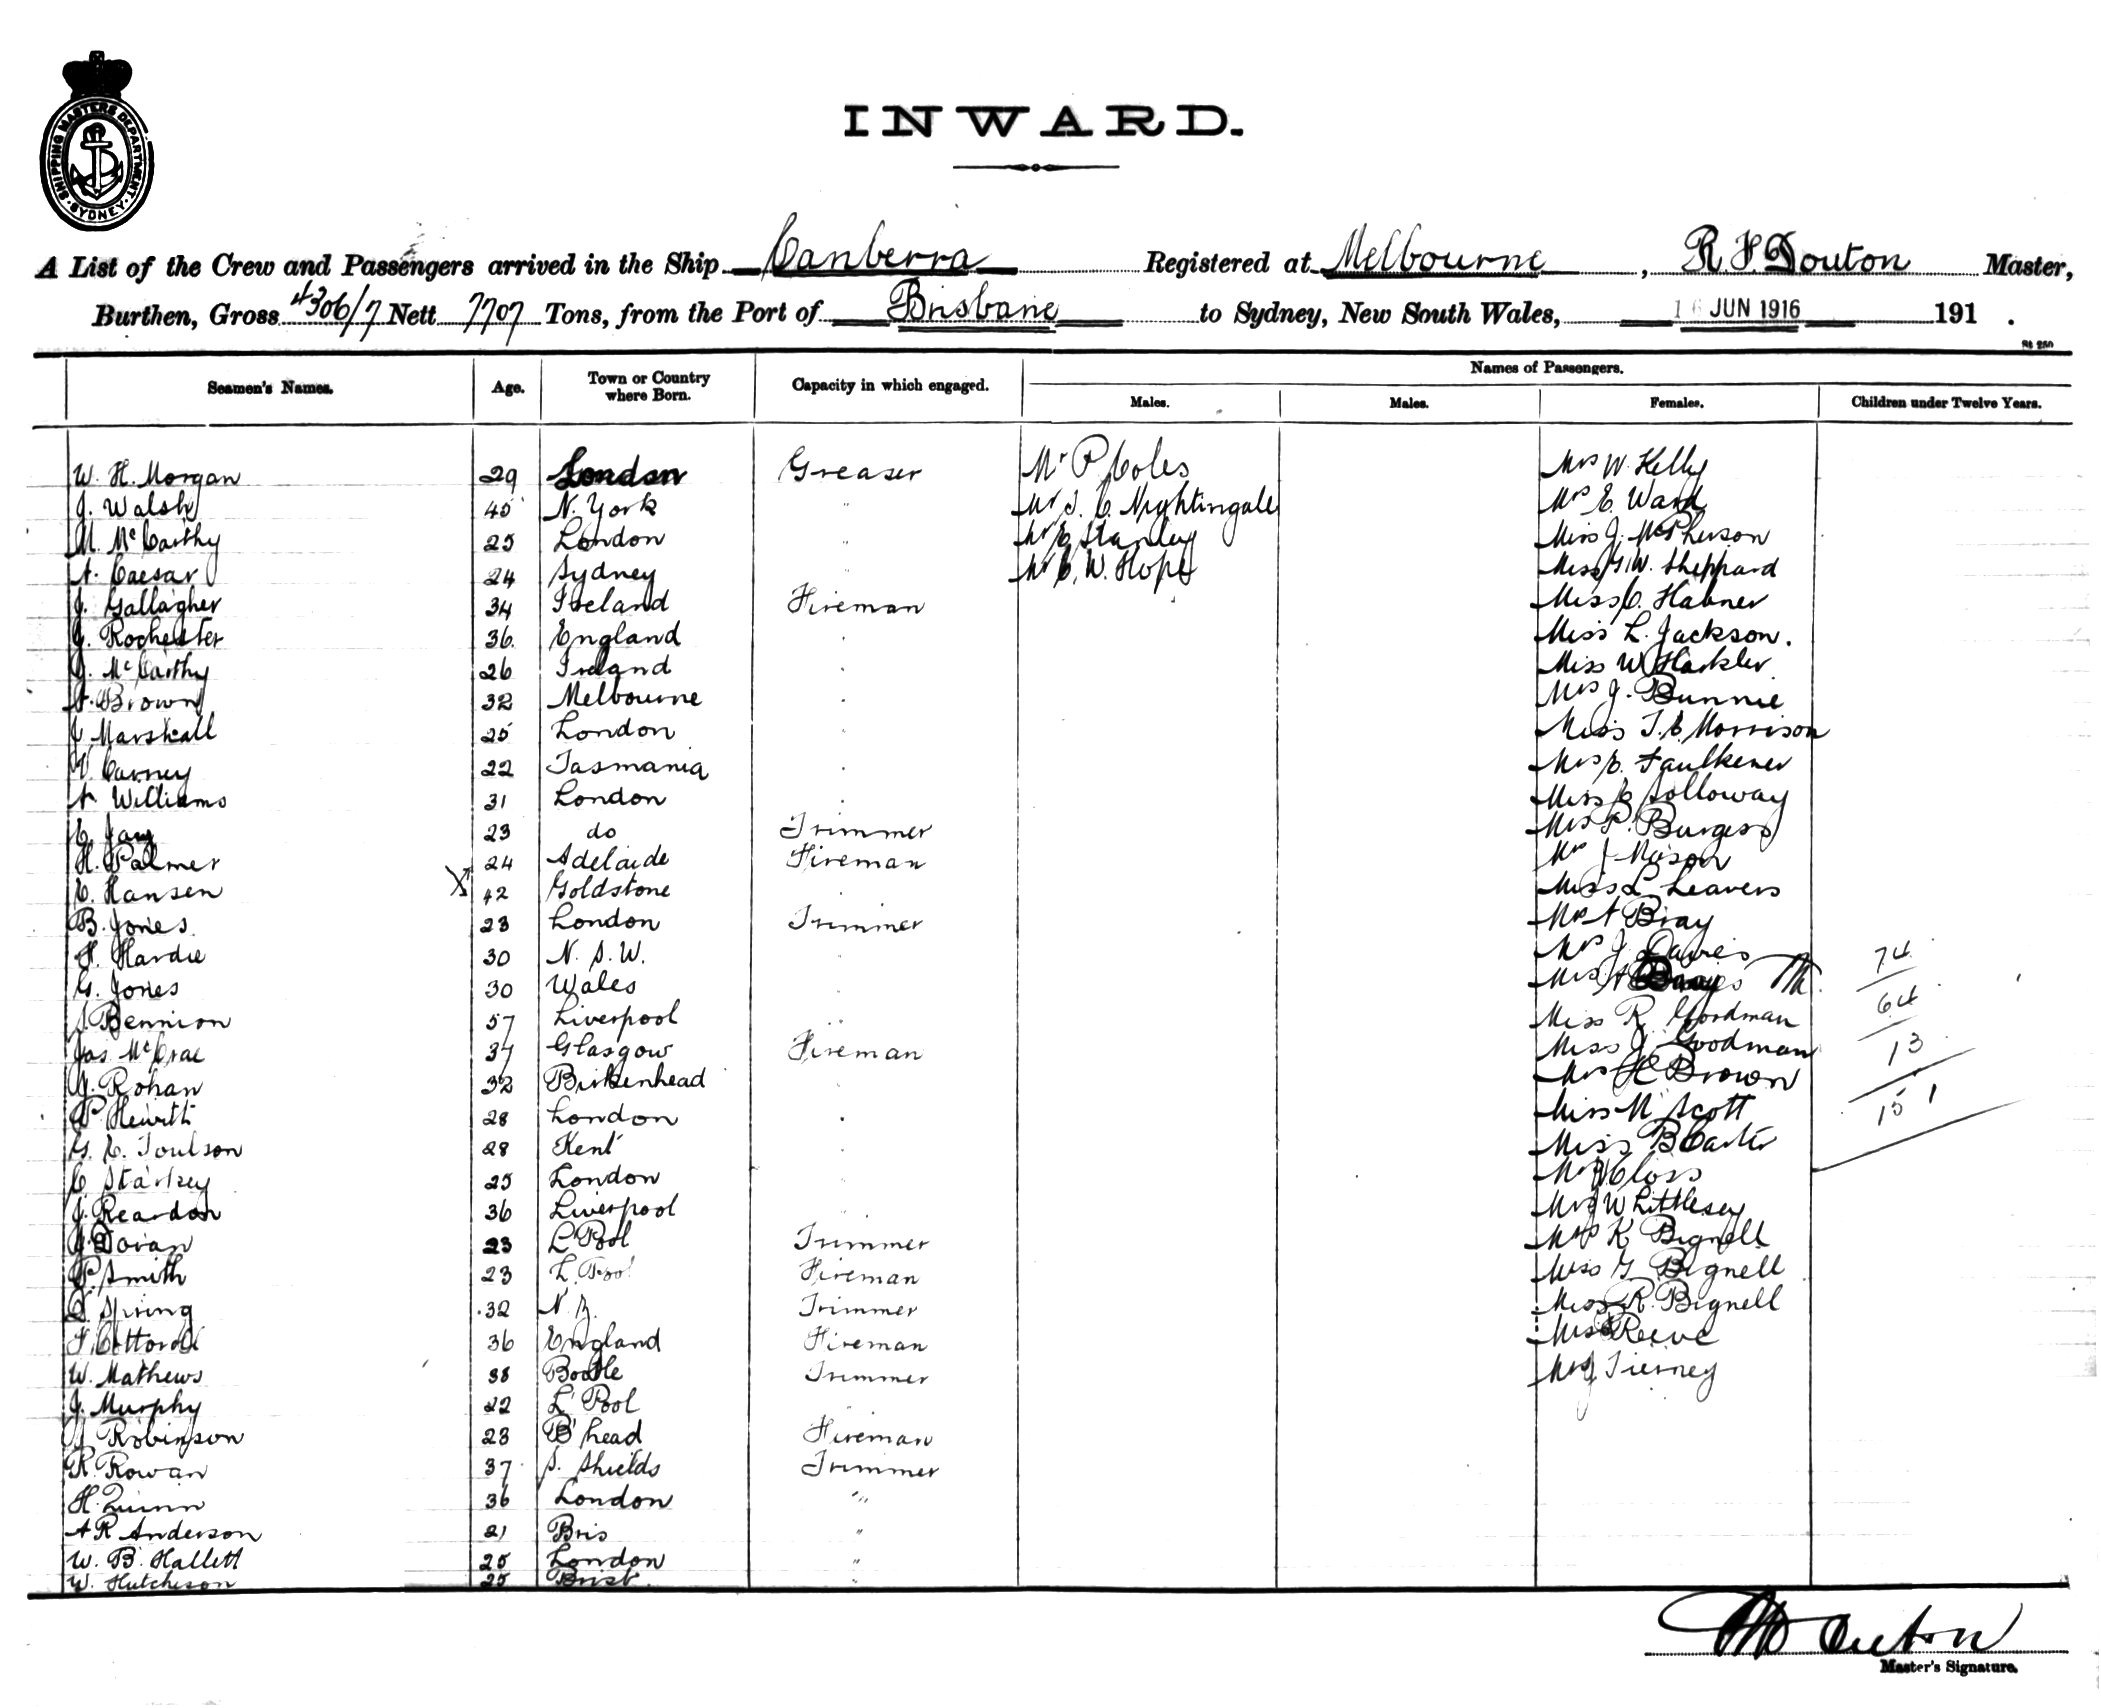 SHIPPING MASTERS DEPARTMENT
SYDNEY
INWARD.
A List of the Crew and Passengers arrived in the Ship Canberra Registered at Melbourne, R. F. Douton Master,
Burthen, Gross 4306/7 Nett 7707 Tons, from the Port of Brisbane to Sydney, New South Wales, 16 JUN 1916 191 .
St 250
Seamen's Names. Age. Town or Country where Born. Capacity in which engaged. Names of Passengers.
Males. Males. Females. Children under Twelve Years.
W. H. Morgan 29 London Greaser Mr P Coles Mrs W. Kelly
J. Walsh 45 N. York " Mr J. C. Nightingale Mrs E. Ward
M. McCarthy 25 London " Mr E Stanley Miss J. McPherson
A. Caesar 24 Sydney " Mr C. W. Hope Miss G. W. Sheppard
J. Gallagher 34 Ireland Fireman Miss C. Habner
J. Rochester 36 England " Miss L. Jackson.
J. McCarthy 26 Ireland " Miss W
A. Brown 32 Melbourne " Mrs J. Bunnie
J. Marshall 25 London " Miss T. E Morrison
V. Carney 22 Tasmania " Mrs E. Faulkener
A Williams 31 London " Miss E Solloway
C. Jay 23 do Trimmer Mrs P. Burgess
H. Palmer 24 Adelaide Fireman Mrs J Mason
C. Hansen X 42 Goldstone Miss L. Leavers
B. Jones. 23 London Trimmer Mrs A Bray
F. Hardie 30 N. S. W. " Mrs J. Davies
G. Jones 30 Wales " 74
J. Bennion 57 Liverpool " Miss R. Goodman 64
Jas McCrae 37 Glasgow Fireman Miss J. Goodman 13
J. Rohan 32 Birkenhead Mrs H Brown
P. Hewitt 28 London " Miss M Scott 151
G. E. Toulson 28 Kent " Miss B Carter
C. Starkey 25 London Closs
J. Reardon 36 Liverpool " Mrs J W Littlesey
J. Doran 23 L'Pool Trimmer Mrs K Bignell
P. Smith 23 L. Pool Fireman Miss G. Bignell
Spring 32 N. Z. Trimmer Miss R. Bignell
F. 36 England Fireman Miss Reeve
W. Mathews 38 Bootle Trimmer Mrs J Tierney
J. Murphy 22 L'Pool
J Robinson 23 B'head Fireman
R. Rowan 37 S. Shields Trimmer
H. Quinn 36 London "
A R Anderson 21 Bris "
W. B. Hallett 25 London "
W. Hutcheson 25 Brisb. "
Douton
Master's Signature.